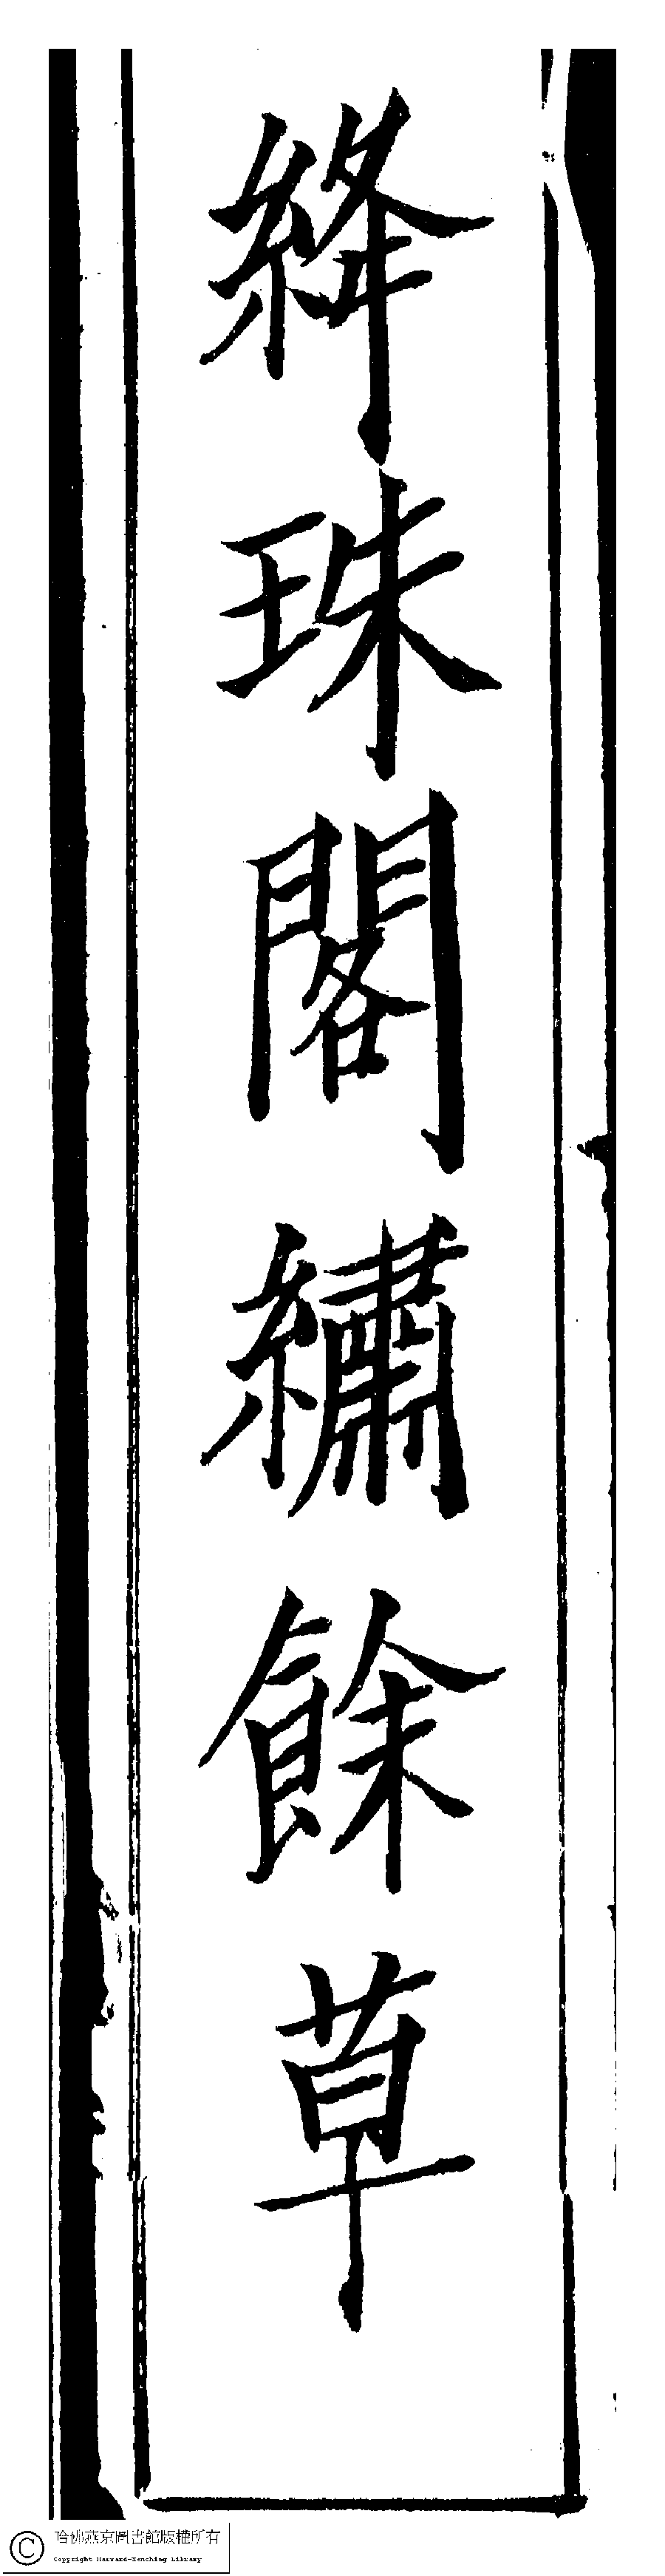 絳珠閣繡餘草
哈佛燕京圖書館版權所有
Copyright Harvard-Yenching Library